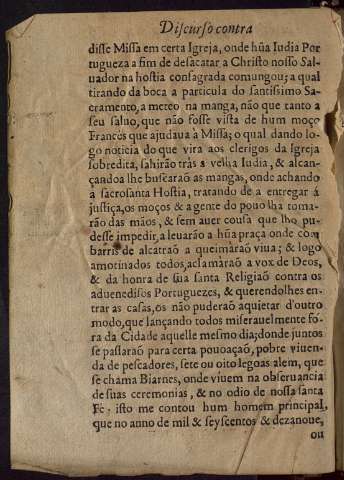 Discurso contra
disse Missa em certa Igreja, onde hũa Iudia Por
tugueza a fim de desacatar a Christo nosso Sal-
uador na hostia consagrada comungou; a qual
tirando da boca a particula do santissimo Sa-
cramento, a meteo na manga, não que tanto a
seu saluo, que não fosse vista de hum moço
Francès que ajudaua à Missa; o qual dando lo-
go noticia do que vira aos clerigos da Igreja
sobredita, sahirão tràs a velha Iudia, & alcan-
çandoa lhe buscarão as mangas, onde achando
a sacrosanta Hostia, tratando de a entregar á
justiça, os moços & a gente do pouo lha toma-
rão das mãos, & sem auer cousa que lho pu-
desse impedir, a leuarão a hũa praça onde com
barris de alcatrão a queimàrão viua; & logo
amotinados todos, aclamàrão a vox de Deos,
& da honra de sua santa Religião contra os
aduenediços Portuguezes, & querendolhes en-
trar as casas, os não puderão aquietar d'outro
modo, que lançando todos miserauelmente fó-
ra da Cidade aquelle mesmo dia; donde juntos
se passarão para certa pouoaçaõ, pobre viuen-
da de pescadores, sete ou oito legoas alem, que
se chama Biarnes, onde viuem na obseruancia
de suas ceremonias, & no odio de nossa santa
Fè: isto me contou hum homem principal,
que no anno de mil & seyscentos & dezanoue,
ou